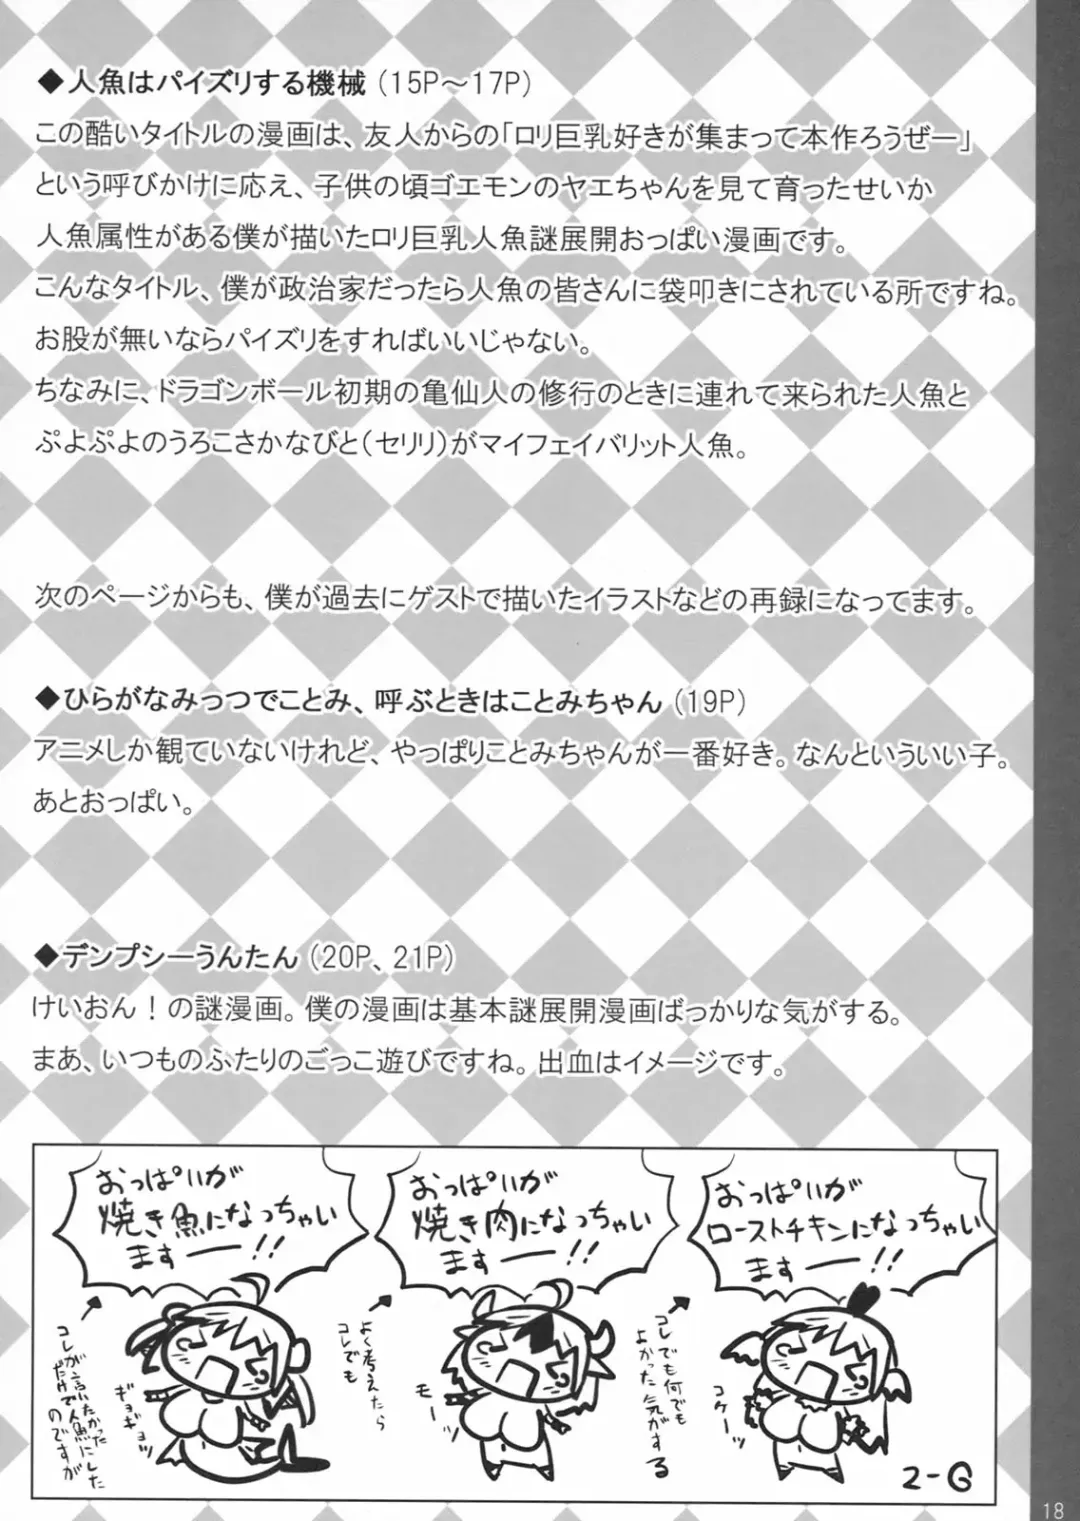 ◆人魚はパイズリする機械（15P～17P）
この酷いタイトルの漫画は、友人からの「ロリ巨乳好きが集まって本作ろうぜー」
という呼びかけに応え、子供の頃ゴエモンのヤエちゃんを見て育ったせいか
人魚属性がある僕が描いたロリ巨乳人魚謎展開おっぱい漫画です。
こんなタイトル、僕が政治家だったら人魚の皆さんに袋叩きにされている所ですね。
お股が無いならパイズリをすればいいじゃない。
ちなみに、ドラゴンボール初期の亀仙人の修行のときに連れて来られた人魚と
ぷよぷよのうろこさかなびと（セリリ）がマイフェイバリット人魚。
次のページからも、僕が過去にゲストで描いたイラストなどの再録になってます。
◆ひらがなみっつでことみ、呼ぶときはことみちゃん（19P）
アニメしか観ていないけれど、やっぱりことみちゃんが一番好き。なんといういい子。
あとおっぱい。
◆デンプシーうんたん（20P、21P）
けいおん！の謎漫画。僕の漫画は基本謎展開漫画ばっかりな気がする。
まあ、いつものふたりのごっこ遊びですね。出血はイメージです。
おっぱいが
焼き魚になっちゃい
ますーー!!
コレが言いたかった
だけで人魚にした
のですが
ギョギョッ
おっぱいが
焼き肉になっちゃい
ますーー!!
よく考えたら
コレでも
モーッ
おっぱいが
ローストチキンになっちゃい
ますーー!!
コレでも何でも
よかった気がする
コケーッ
2-G
18